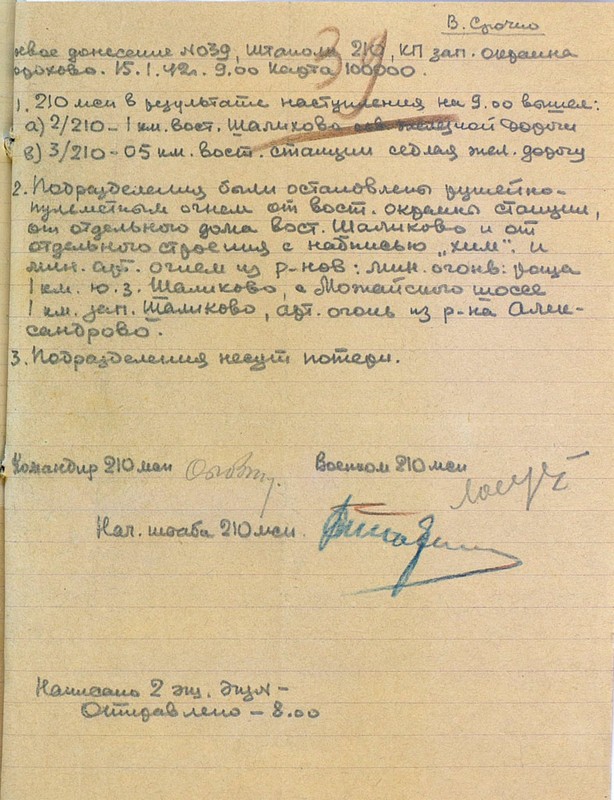 В. Срочно
евое донесение №039, Штаполк 210, КП зап. окраина
орохово. 15.1.42г. 9.00 Карта 100000.
39
1. 210 мсп в результате наступления на 9.00 вышел:
а) 2/210 – 1 км. вост. Шаликово железной дороги
в) 3/210 – 05 км. вост. станции седлая жел. дорогу
2. Подразделения были остановлены ружейно-
пульметным огнем от вост. окраины станции,
от отдельного дома вост. Шаликово и от
отдельного строения с надписью „хим". и
мин. арт. огнем из р-нов: мин. огонь: роща
1 км. ю. з. Шаликово, с Можайского шоссе
1 км. зап. Шаликово, арт. огонь из р-на Алек-
сандрово.
3. Подразделения несут потери.
Командир 210 мсп
Военком 210 мсп
Нач. штаба 210 мсп
Написано 2 экз. экз№ –
Отправлено – 8.00